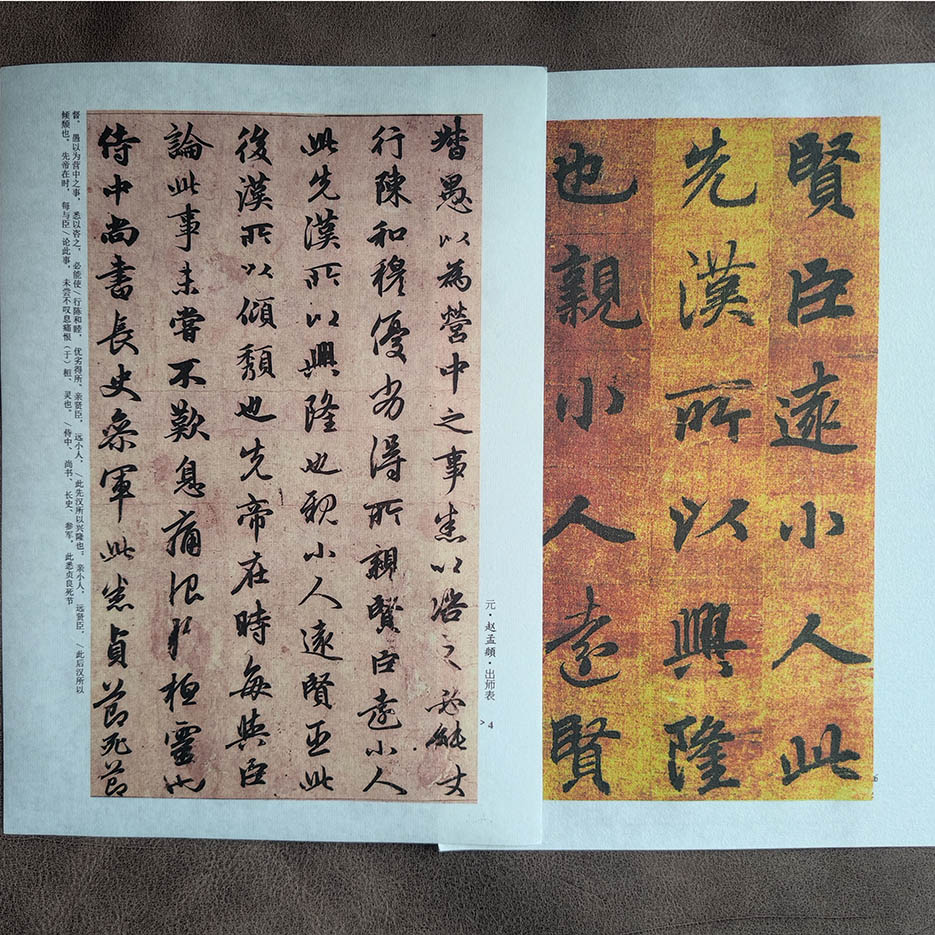 賢臣遠小人此
先漢所以興隆
也親小人遠賢
元·赵孟頫·出师表
>4
督愚以為營中之事悉以咨之必能使
行陳和穆優劣得所親賢臣遠小人
此先漢所以興隆也親小人遠賢臣此
後漢所以傾頹也先帝在時每與臣
論此事未嘗不歎息痛恨於桓靈也
侍中尚書長史參軍此悉貞節死節
督，愚以为营中之事，悉以咨之，必能使/行陈和睦，优劣得所，亲贤臣，远小人，/此先汉所以兴隆也。亲小人，远贤臣，/此后汉所以
倾颓也，先帝在时，每与臣/论此事，未尝不叹息痛恨（于）桓、灵也。/侍中、尚书、长史、参军，此悉贞良死节